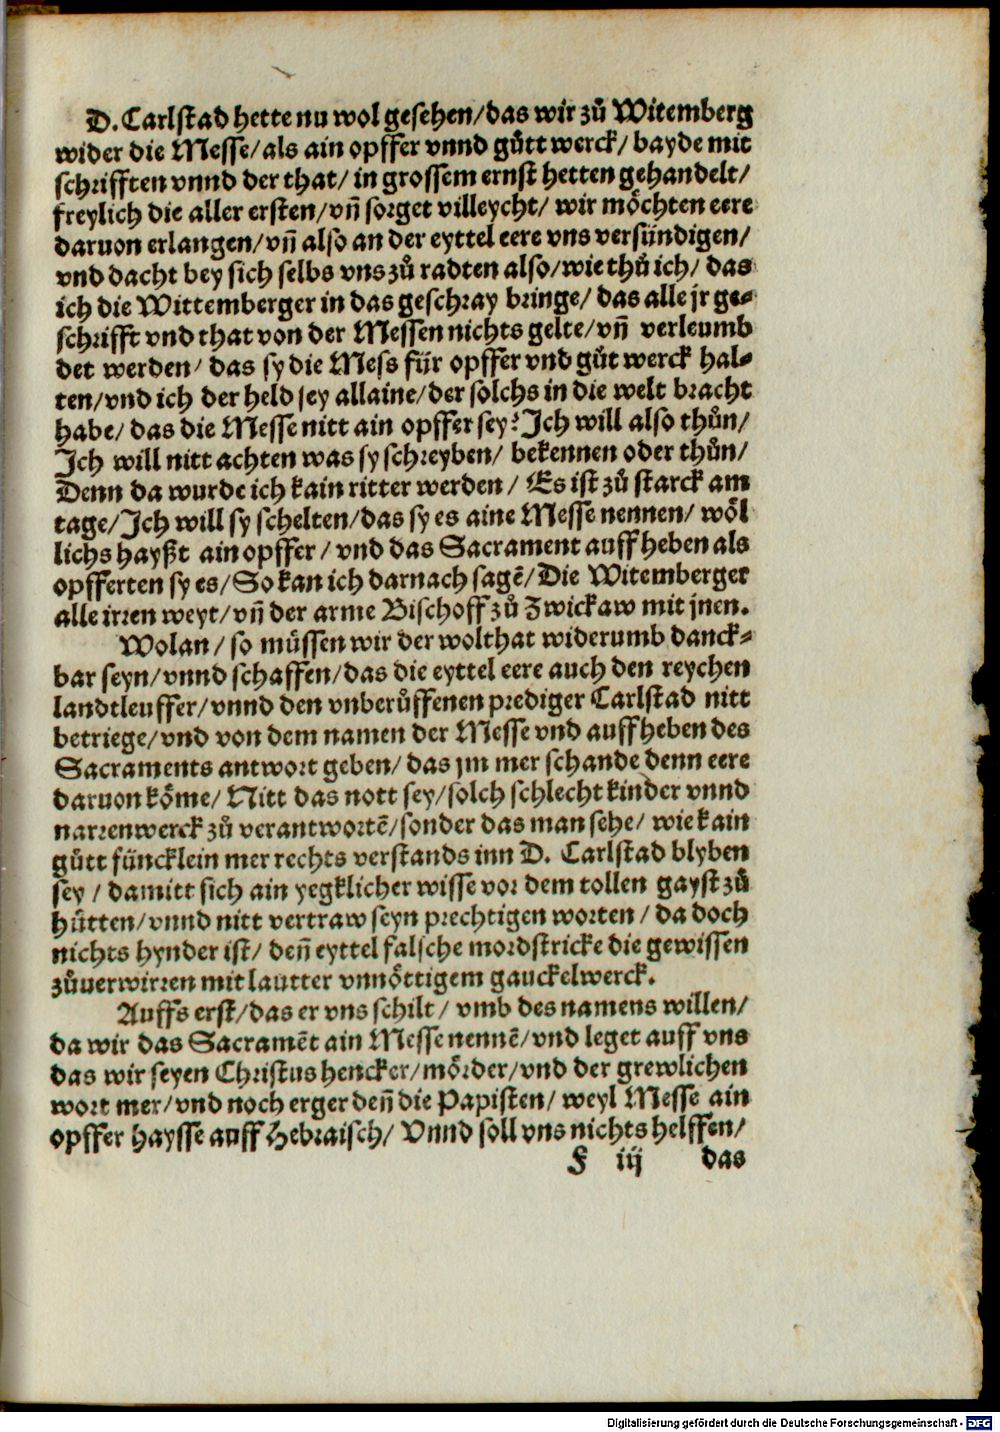 D. Carlstad hette nu wol gesehen/das wir zů Witemberg
wider die Messe/als ain opffer vnnd gůtt werck/ bayde mit
schrifften vnnd der that/ in grossem ernst hetten gehandelt/
freylich die aller ersten/vñ sorget villeycht/ wir möchten eere
daruon erlangen/vñ also an der eyttel eere vns versündigen/
vnd dacht bey sich selbs vns zů radten also/wie thů ich/ das
ich die Wittemberger in das geschray bringe/ das alle jr ge⸗
schrifft vnd that von der Messen nichts gelte/vñ verleumb
det werden/ das sy die Mess für opffer vnd gůt werck hal⸗
ten/vnd ich der held sey allaine/der solchs in die welt bracht
habe/ das die Messe nitt ain opffer sey? Ich will also thůn/
Ich will nitt achten was sy schreyben/ bekennen oder thůn/
Denn da wurde ich kain ritter werden / Es ist zů starck am
tage/Ich will sy schelten/das sy es aine Messe nennen/ wöl
lichs hayßt ain opffer / vnd das Sacrament auffheben als
opfferten sy es/So kan ich darnach sagē/Die Witemberger
alle irren weyt/vñ der arme Bischoff zů Zwickaw mit jnen.
Wolan / so müssen wir der wolthat widerumb danck⸗
bar seyn/vnnd schaffen/das die eyttel eere auch den reychen
landtleuffer/vnnd den vnberůffenen prediger Carlstad nitt
betriege/vnd von dem namen der Messe vnd auffheben des
Sacraments antwort geben/ das jm mer schande denn eere
daruon köme/ Nitt das nott sey/solch schlecht kinder vnnd
narrenwerck zů verantwortē/sonder das man sehe/ wie kain
gůtt füncklein mer rechts verstands inn D. Carlstad blyben
sey / damitt sich ain yegklicher wisse vor dem tollen gayst zů
hütten/vnnd nitt vertraw seyn prechtigen worten / da doch
nichts hynder ist/ deñ eyttel falsche mordstricke die gewissen
zůuerwirren mit lautter vnnöttigem gauckelwerck.
Auffs erst/das er vns schilt / vmb des namens willen/
da wir das Sacramēt ain Messe nennē/vnd leget auff vns
das wir seyen Christus hencker/mörder/vnd der grewlichen
wort mer/vnd noch erger deñ die Papisten/ weyl Messe ain
opffer haysse auff Hebraisch/ Vnnd soll vns nichts helffen/
F iij das
Digitalisierung gefördert durch die Deutsche Forschungsgemeinschaft - DFG